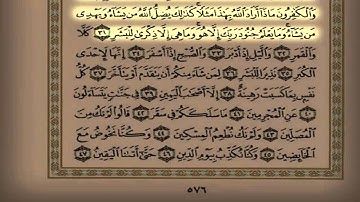 وَالْكَافِرُونَ مَاذَا أَرَادَ اللَّهُ بِهَٰذَا مَثَلًا كَذَٰلِكَ يُضِلُّ اللَّهُ مَن يَشَاءُ وَيَهْدِي
مَن يَشَاءُ وَمَا يَعْلَمُ جُنُودَ رَبِّكَ إِلَّا هُوَ وَمَا هِيَ إِلَّا ذِكْرَىٰ لِلْبَشَرِ ٣١ كَلَّا
وَالْقَمَرِ ٣٢ وَاللَّيْلِ إِذْ أَدْبَرَ ٣٣ وَالصُّبْحِ إِذَا أَسْفَرَ ٣٤ إِنَّهَا لَإِحْدَى
الْكُبَرِ ٣٥ نَذِيرًا لِّلْبَشَرِ ٣٦ لِمَن شَاءَ مِنكُمْ أَن يَتَقَدَّمَ أَوْ يَتَأَخَّرَ ٣٧ كُلُّ
نَفْسٍ بِمَا كَسَبَتْ رَهِينَةٌ ٣٨ إِلَّا أَصْحَابَ الْيَمِينِ ٣٩ فِي جَنَّاتٍ يَتَسَاءَلُونَ
٤٠ عَنِ الْمُجْرِمِينَ ٤١ مَا سَلَكَكُمْ فِي سَقَرَ ٤٢ قَالُوا لَمْ نَكُ مِنَ
الْمُصَلِّينَ ٤٣ وَلَمْ نَكُ نُطْعِمُ الْمِسْكِينَ ٤٤ وَكُنَّا نَخُوضُ مَعَ
الْخَائِضِينَ ٤٥ وَكُنَّا نُكَذِّبُ بِيَوْمِ الدِّينِ ٤٦ حَتَّىٰ أَتَانَا الْيَقِينُ ٤٧
٥٧٦